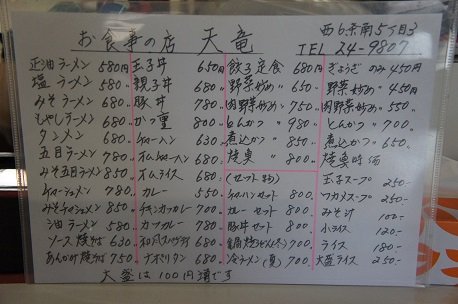 お食事の店 天竜
西6条南5丁目3
TEL 24-9807
正油ラーメン 580円 玉子丼 650円 餃子定食 680円 ぎょうざ のみ 450円
塩ラーメン 580〃 親子丼 680〃 野菜炒め〃 650〃 野菜炒め〃 450〃
みそラーメン 680〃 豚丼 780〃 肉野菜炒め〃 750〃 肉野菜炒め〃 550〃
もやしラーメン 680〃 かつ重 800〃 とんかつ〃 980〃 とんかつ〃 700〃
タンメン 680〃 チャーハン 630〃 煮込かつ〃 850〃 煮込かつ〃 650〃
五目ラーメン 780〃 オムチャーハン 680〃 焼魚〃 800〃 焼魚時価
みそ五目ラーメン 850〃 オムライス 680〃 (セットあり) 玉子スープ 250-
チャーシューメン 780〃 カレー 550〃 チャーハンセット 800〃 ワカメスープ 250-
みそチャーシューメン 850〃 チキンカツカレー 700〃 カレーセット 800〃 みそ汁 100-
油ラーメン 580〃 カツカレー 780〃 豚丼セット 800〃 小ライス 120-
ソース焼そば 630〃 和風スパゲティ 680〃 鍋焼うどん(冬) 700〃 ライス 180-
あんかけ焼そば 750〃 ナポリタン 680〃 冷ラーメン(夏) 700〃 大盛ライス 250-
大盛は100円増です